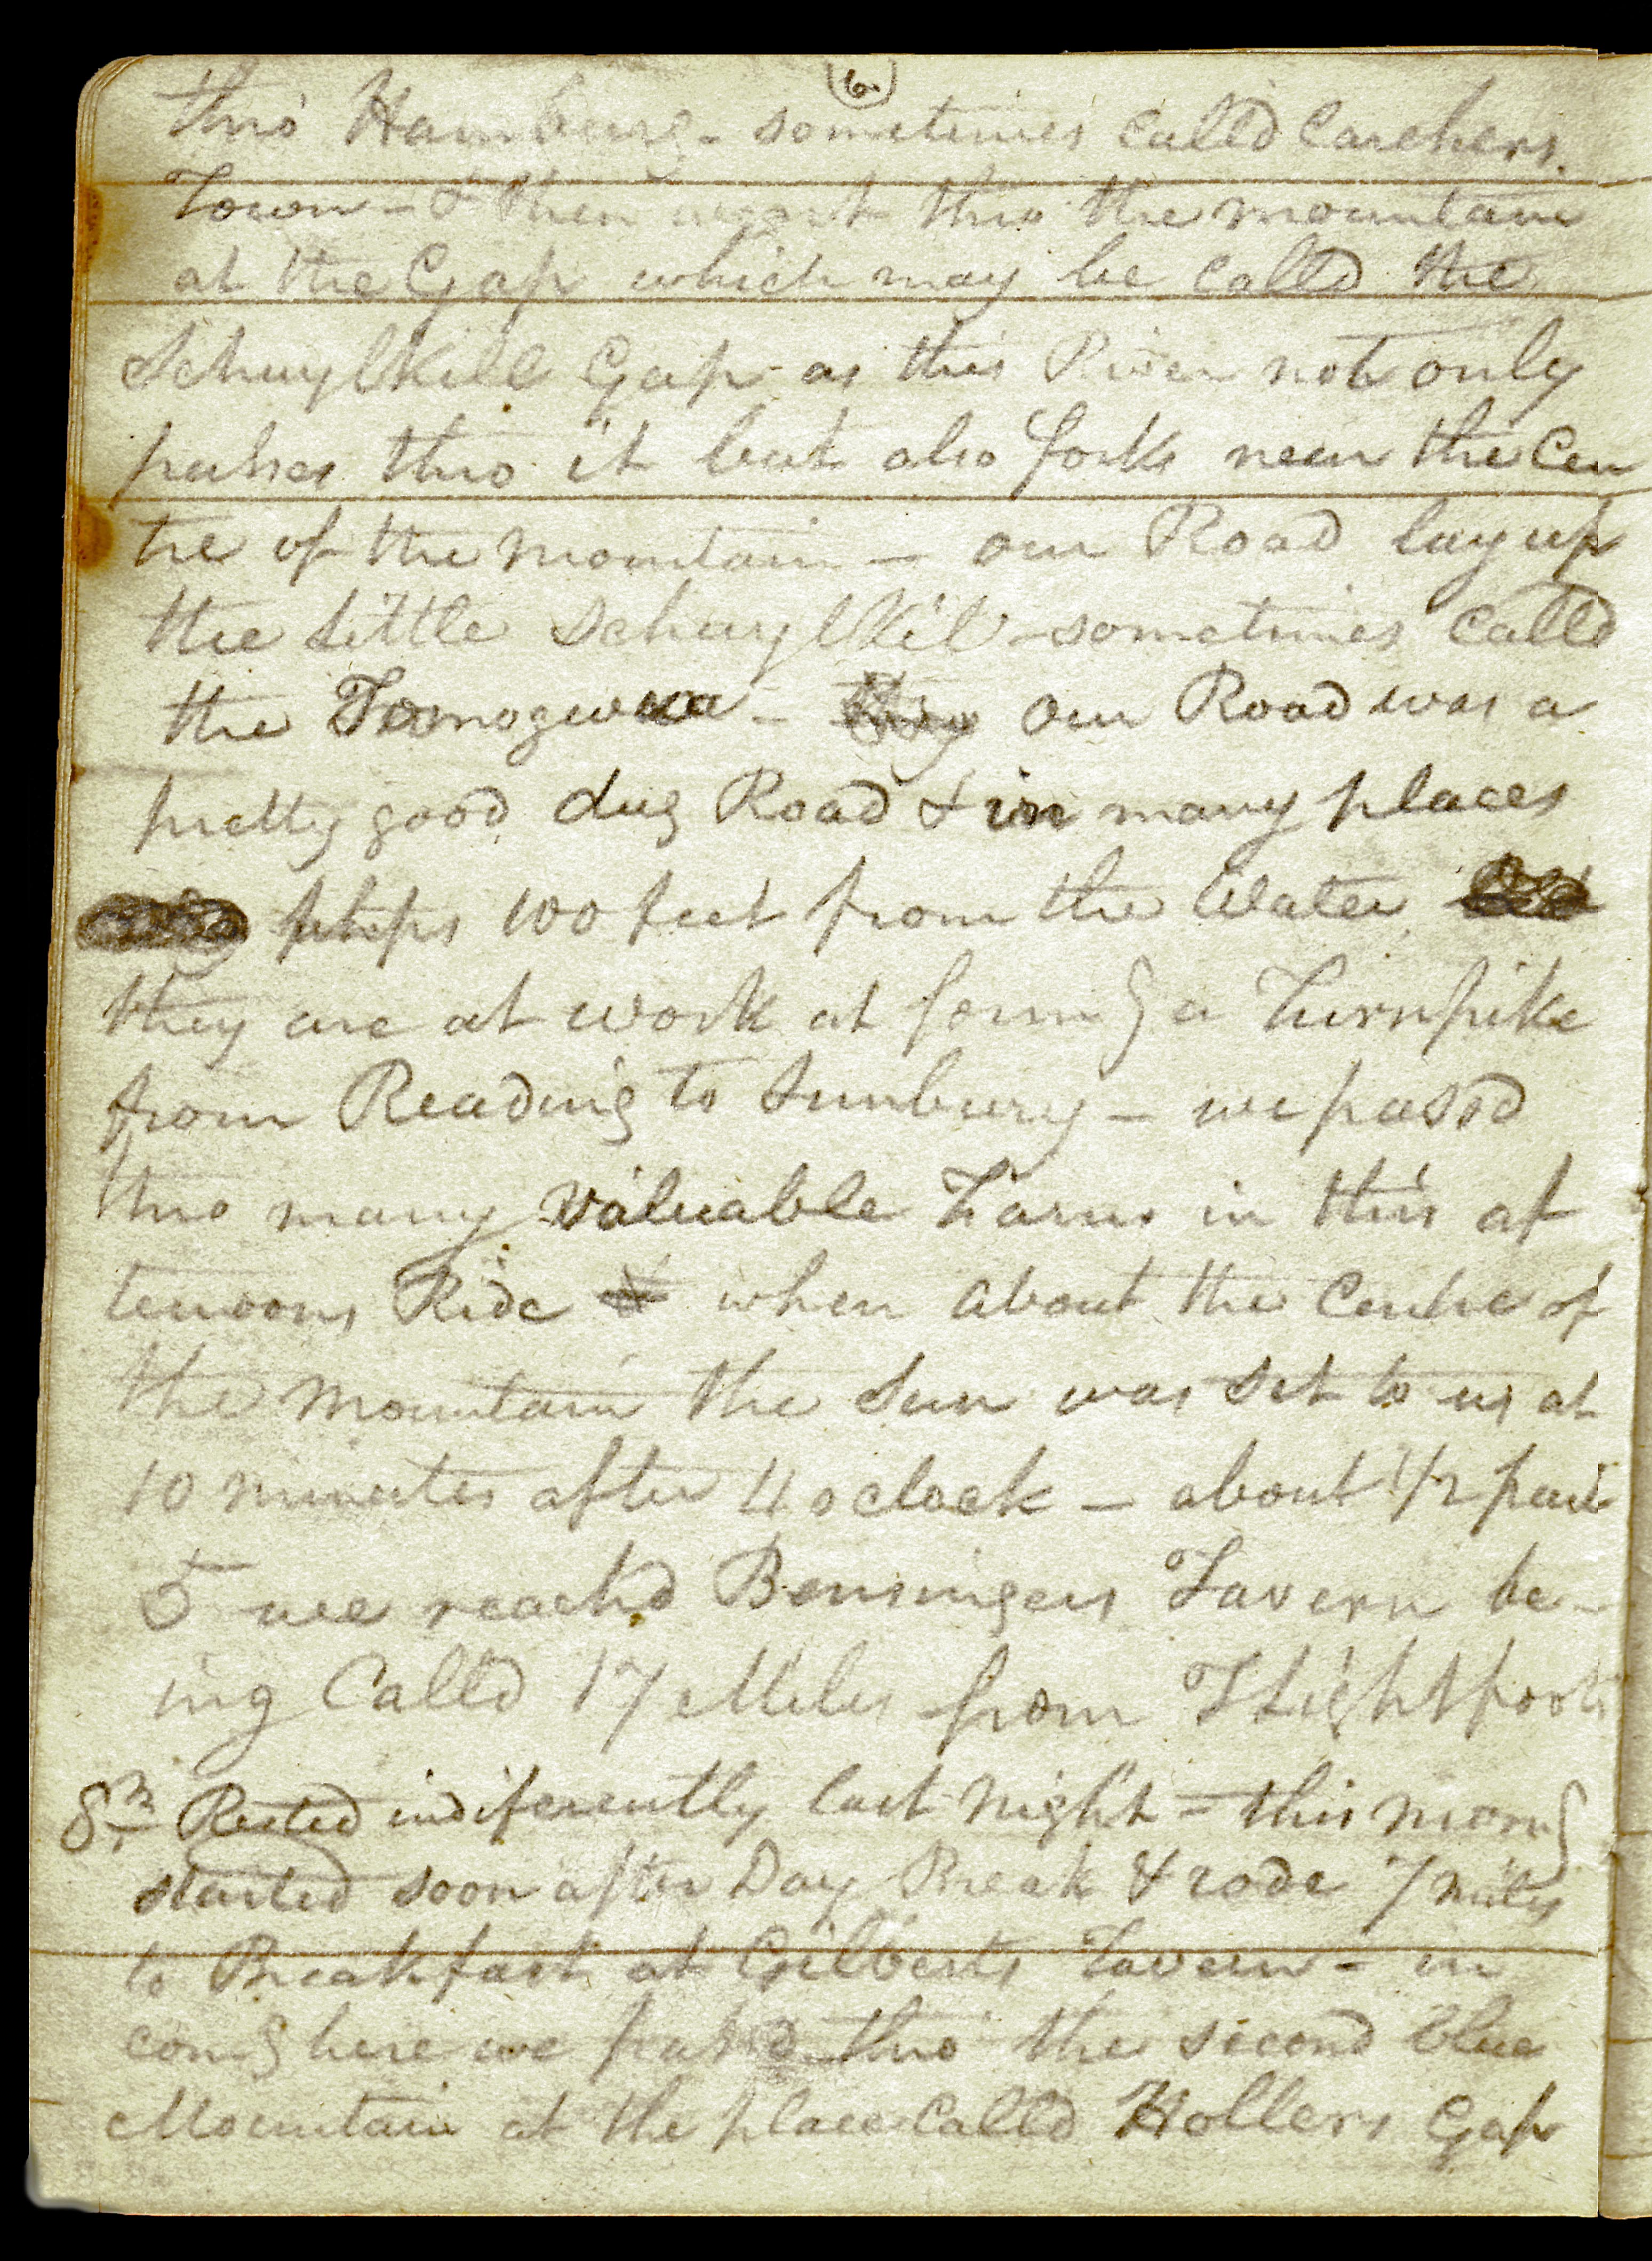 6.
thro' Hamburg - sometimes calld Carchers
Town - & then went thro the mountain
at the Gap which may be calld the
Schuylkill Gap - as this River not only
passes thro it but also forks near the Cen
tre of the mountain - our Road lay up
the Little Schuylkil - sometimes calld
the Tomogwaa - our Road was a
pretty good dug Road & in many places
phps 100 feet from the Water
they are at work at formg a Turnpike
from Reading to Sunbury - we passd
thro many valuable Farms in this af
ternoons Ride when about the Centre of
the mountain the Sun was set to us at
10 minutes after 4 oclock - about 1/2 past
5 we reachd Bensingers Tavern be-
ing Calld 17 Miles from T Lightfoots
8th Rested indiferently last night - this morng
started soon after Day Break & rode 7 miles
to Breakfast at Gilberts Tavern - in
comg here we passd thro' the second blue
Mountain at the place Calld Hollers Gap